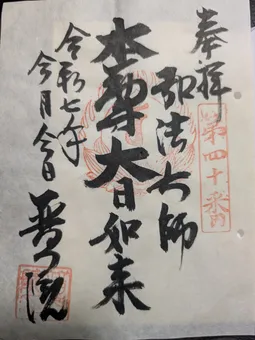 奉拝
第四十番
弘法大師
本尊大日如来
令和七年
今月今日